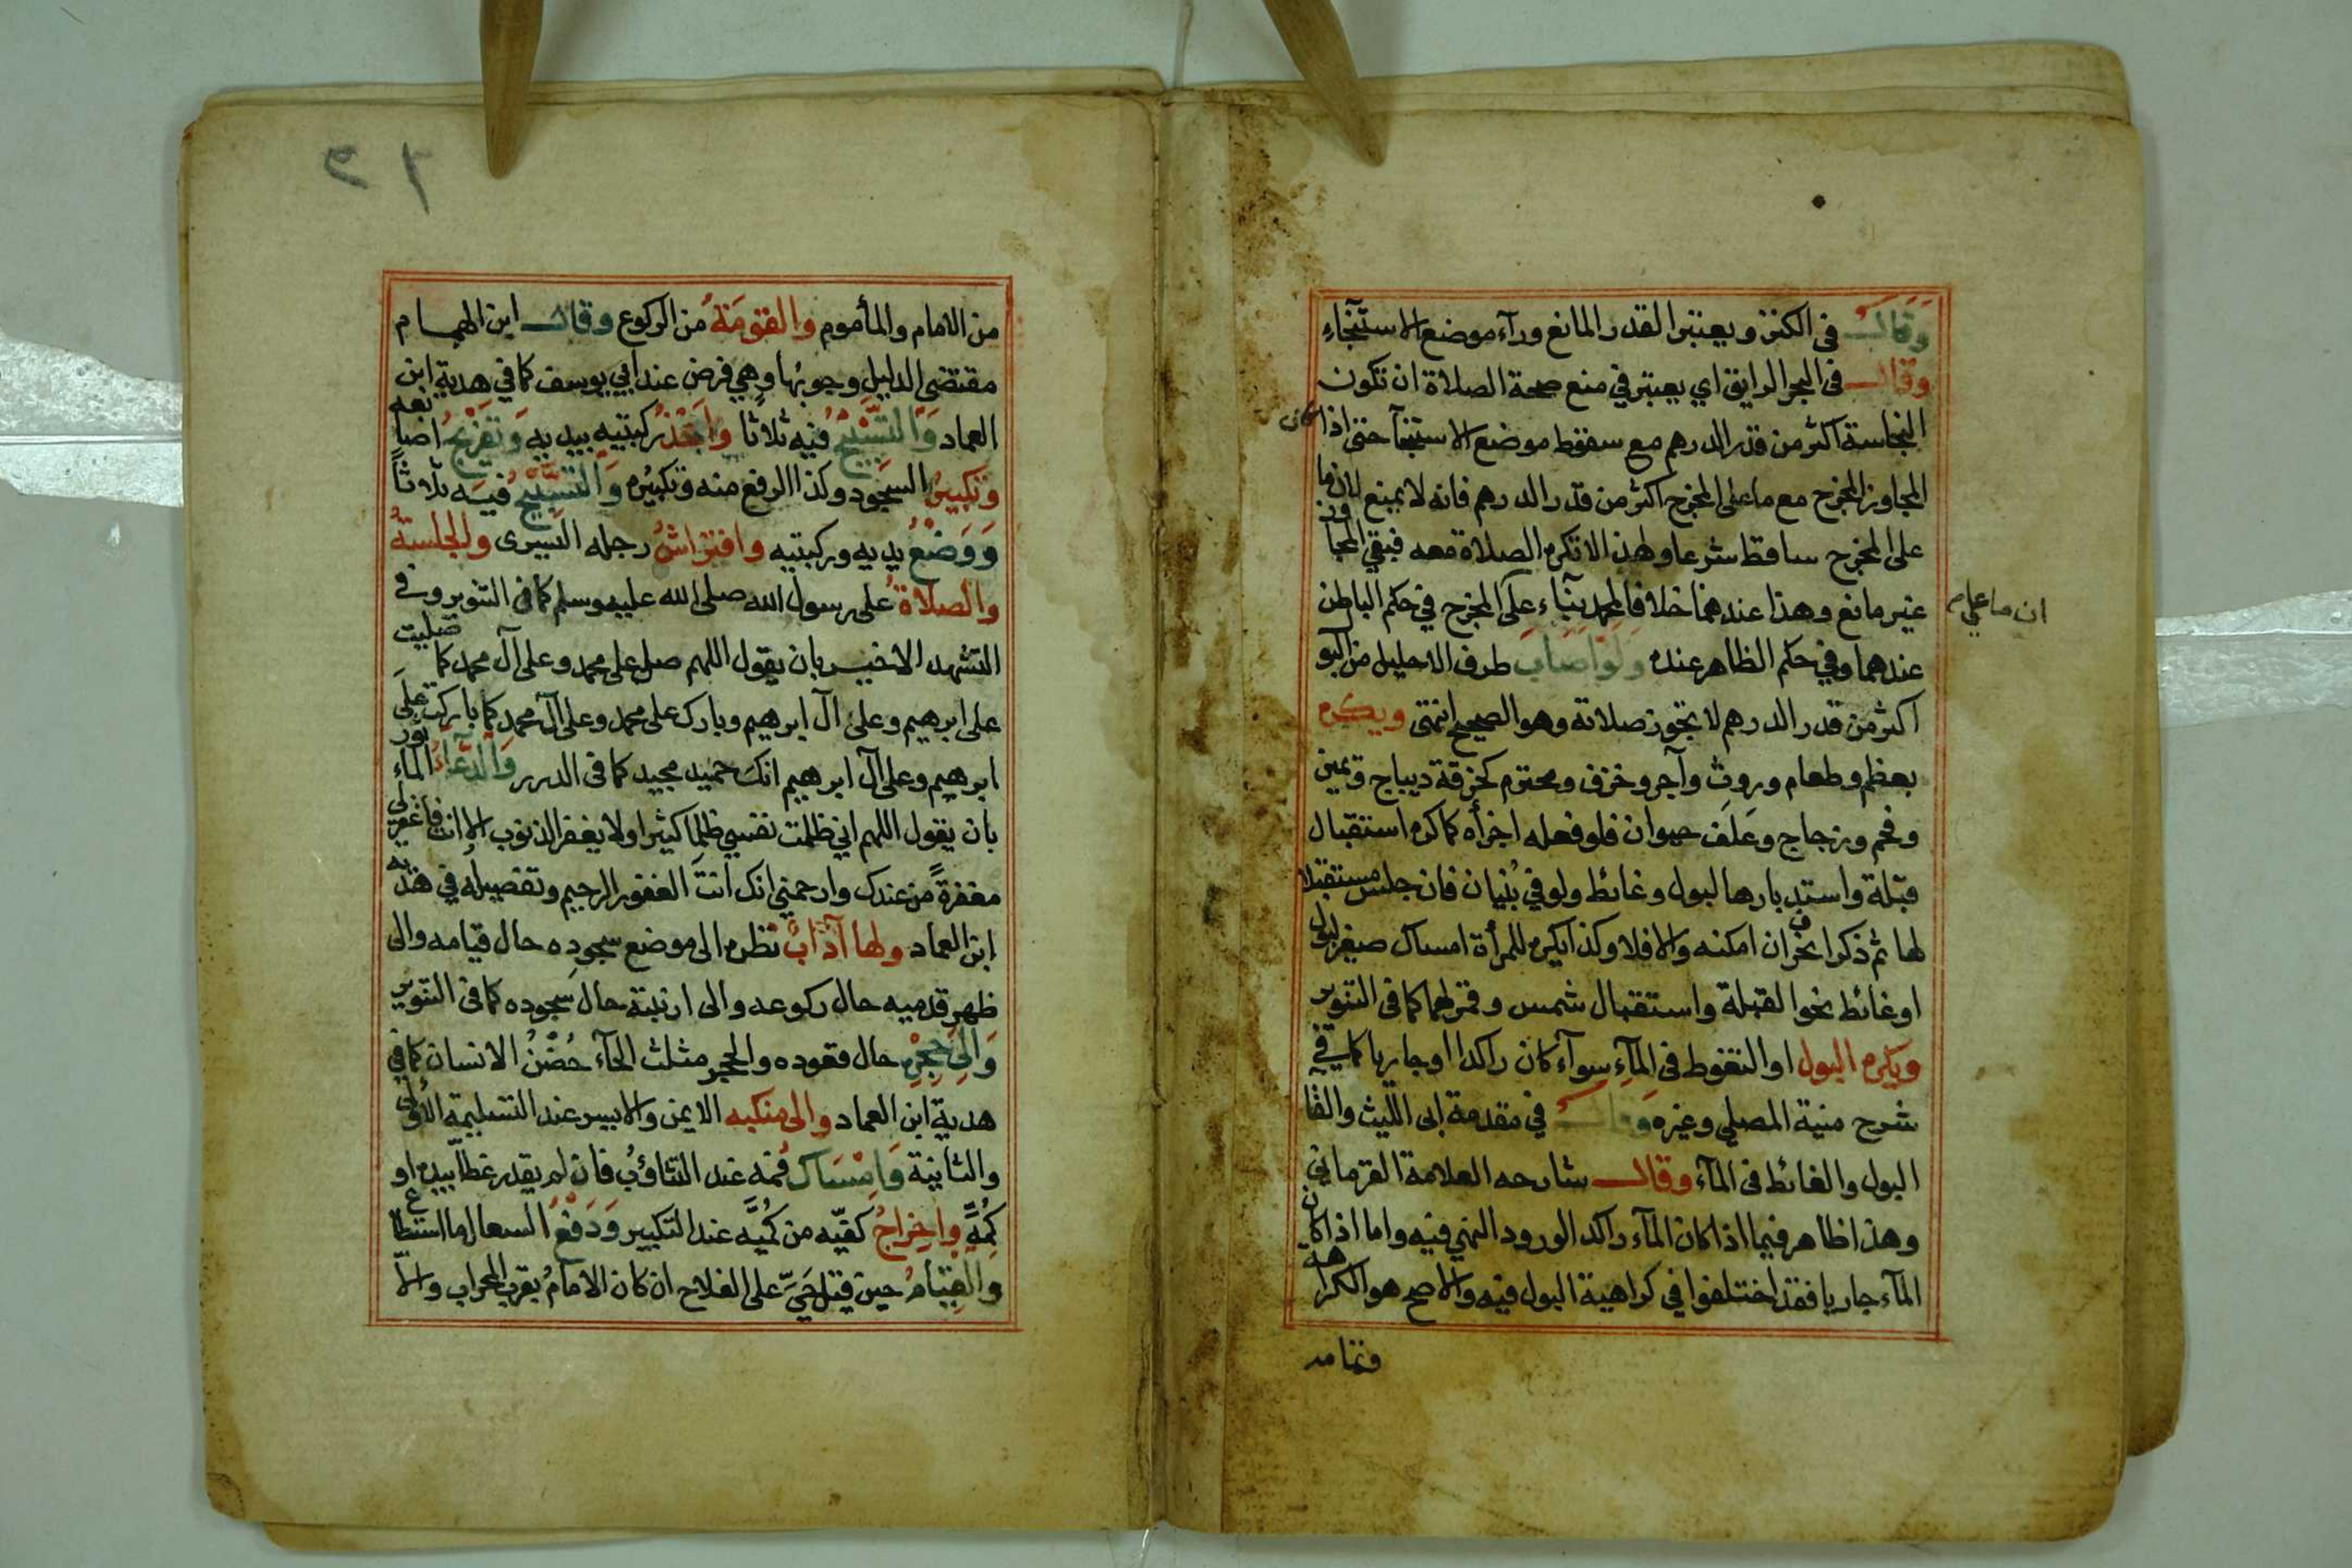 وقال في الكنز ويعتبر القدر المانع ورآء موضع الاستنجآء
وقال في البحر الرايق اي يعتبر في منع صحة الصلاة ان تكون
النجاسة اكثر من قدر الدرهم مع سقوط موضع الاستنجآ حتى اذا كان
المجاوز المخرج مع ما على المخرج اكثر من قدر الدرهم فانه لا يمنع لان ما
على المخرج ساقط شرعا ولهذا لا تكره الصلاة معه فبقي المجاوز
غير مانع وهذا عندهما خلافا لمحمد بنآء على المخرج في حكم الباطن
ان ما على م
عندهما وفي حكم الظاهر عنده ولو اصاب طرف الاحليل من البو
اكثر من قدر الدرهم لا تجوز صلاته وهو الصحيح انتهى ويكره
بعظم وطعام وروث وآجر وخزف ومحترم كخرقة ديباج ويمين
وفحم وزجاج وعلف حيوان فلو فعله اجزأه كما كره استقبال
قبلة واستدبارها لبول وغائط ولو في بنيان فان جلس مستقبلا
لها ثم ذكر انحرف ان امكنه والا فلا وكذا يكره للمرأة امساك صغير لبول
او غائط نحو القبلة واستقبال شمس وقمر لهما كما في التنوير
ويكره البول او التغوط في المآء سوآء كان راكدا او جاريا كما في
شرح منية المصلي وغيره وقال في مقدمة ابى الليث والقا
البول والغائط في المآء وقال شارحه العلامة القرماني
وهذا ظاهر فيما اذا كان المآء راكدا لورود النهي فيه واما اذا كان
المآء جاريا فقد اختلفوا في كراهية البول فيه والاصح هو الكراهة
وتمامه
٢٦
من الامام والمأموم والقومة من الركوع وقال ابن الهمام
مقتضى الدليل وجوبها وهي فرض عند ابي يوسف كما في هدية ابن
العماد والتسبيح فيه ثلاثا واخذ ركبتيه بيديه وتفريج اصابعه
وتكبير السجود وكذا الرفع منه وتكبيره والتسبيح فيه ثلاثاً
ووضع يديه وركبتيه وافتراش رجله اليسرى والجلسة
والصلاة على رسول الله صلى الله عليه وسلم كما في التنوير وفي
التشهد الاخير بان يقول اللهم صل على محمد وعلى آل محمد كما صليت
على ابرهيم وعلى آل ابرهيم وبارك على محمد وعلى آل محمد كما باركت على
ابرهيم وعلى آل ابرهيم انك حميد مجيد كما في الدرر والدعاء المأثور
بان يقول اللهم اني ظلمت نفسي ظلما كثيرا ولا يغفر الذنوب الا انت فاغفر لي
مغفرةً من عندك وارحمني انك انت الغفور الرحيم وتفصيله في هدية
ابن العماد ولها آدابٌ نظره الى موضع سجوده حال قيامه والى
ظهر قدميه حال ركوعه والى ارنبته حال سجوده كما في التنوير
والى حجره حال قعوده والحجر مثلث الحآء حضن الانسان كما في
هدية ابن العماد والى منكبه الايمن والايسر عند التسليمة الاولى
والثانية وامساك فمه عند التثاؤب فان لم يقدر غطا بيده او
كمه واخراج كفيه من كميه عند التكبير ودفع السعال ما استطاع
والقيام حين قيل حيّ على الفلاح ان كان الامام بقرب المحراب والا